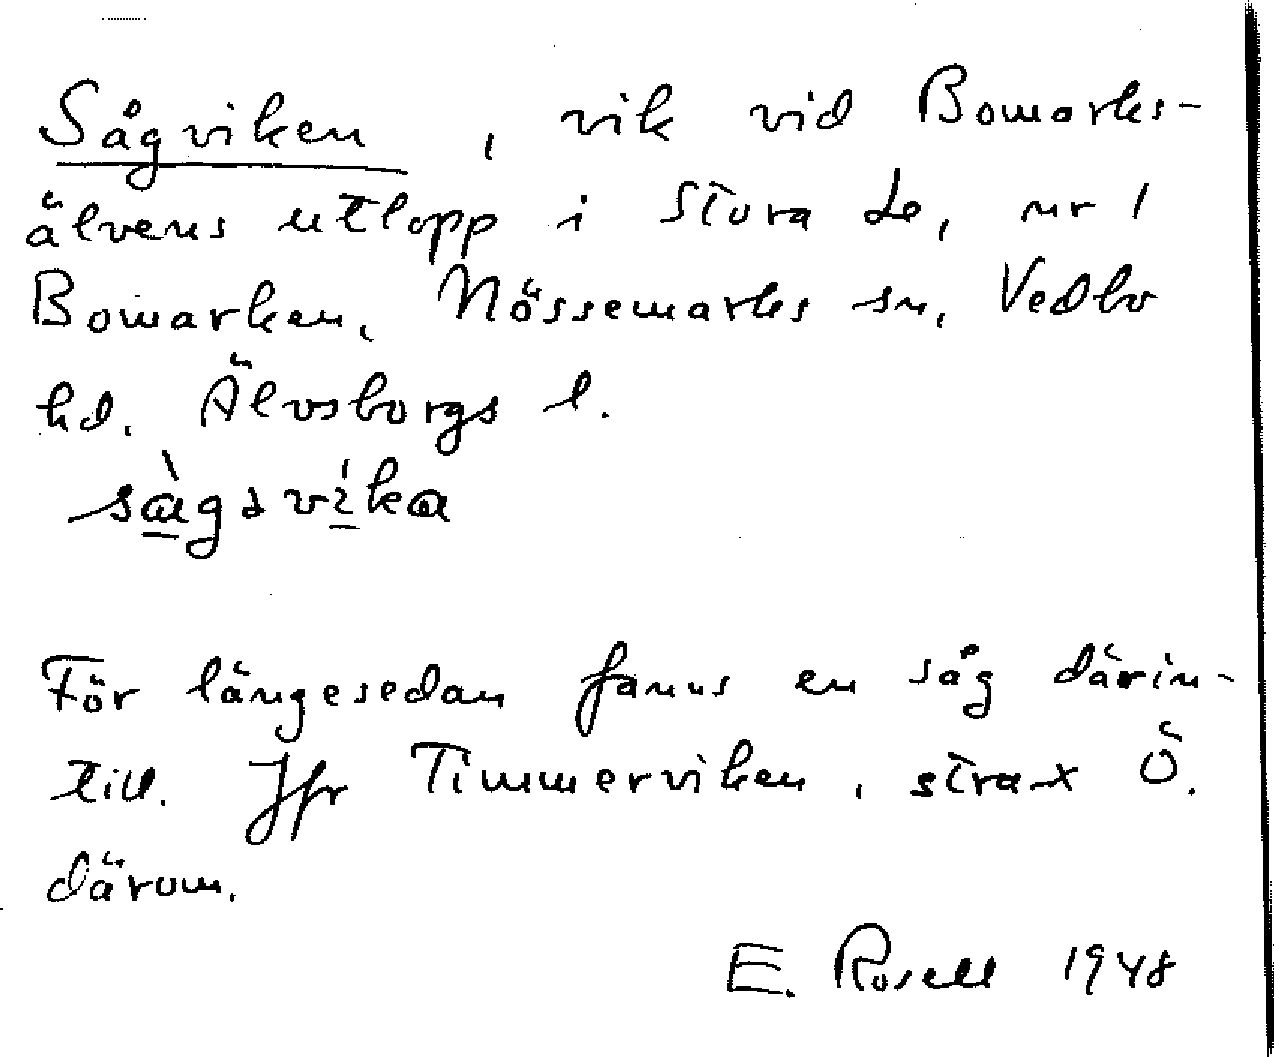 Sågviken, vik vid Bomarks-
älvens utlopp i Stora Le, nr 1
Bomarken, Nössemarks sn, Vedbo
hd. Älvsborgs l.
För längesedan fanns en såg därin-
till. Jfr Timmerviken, strax Ö.
därom.
E. Rosell 1948